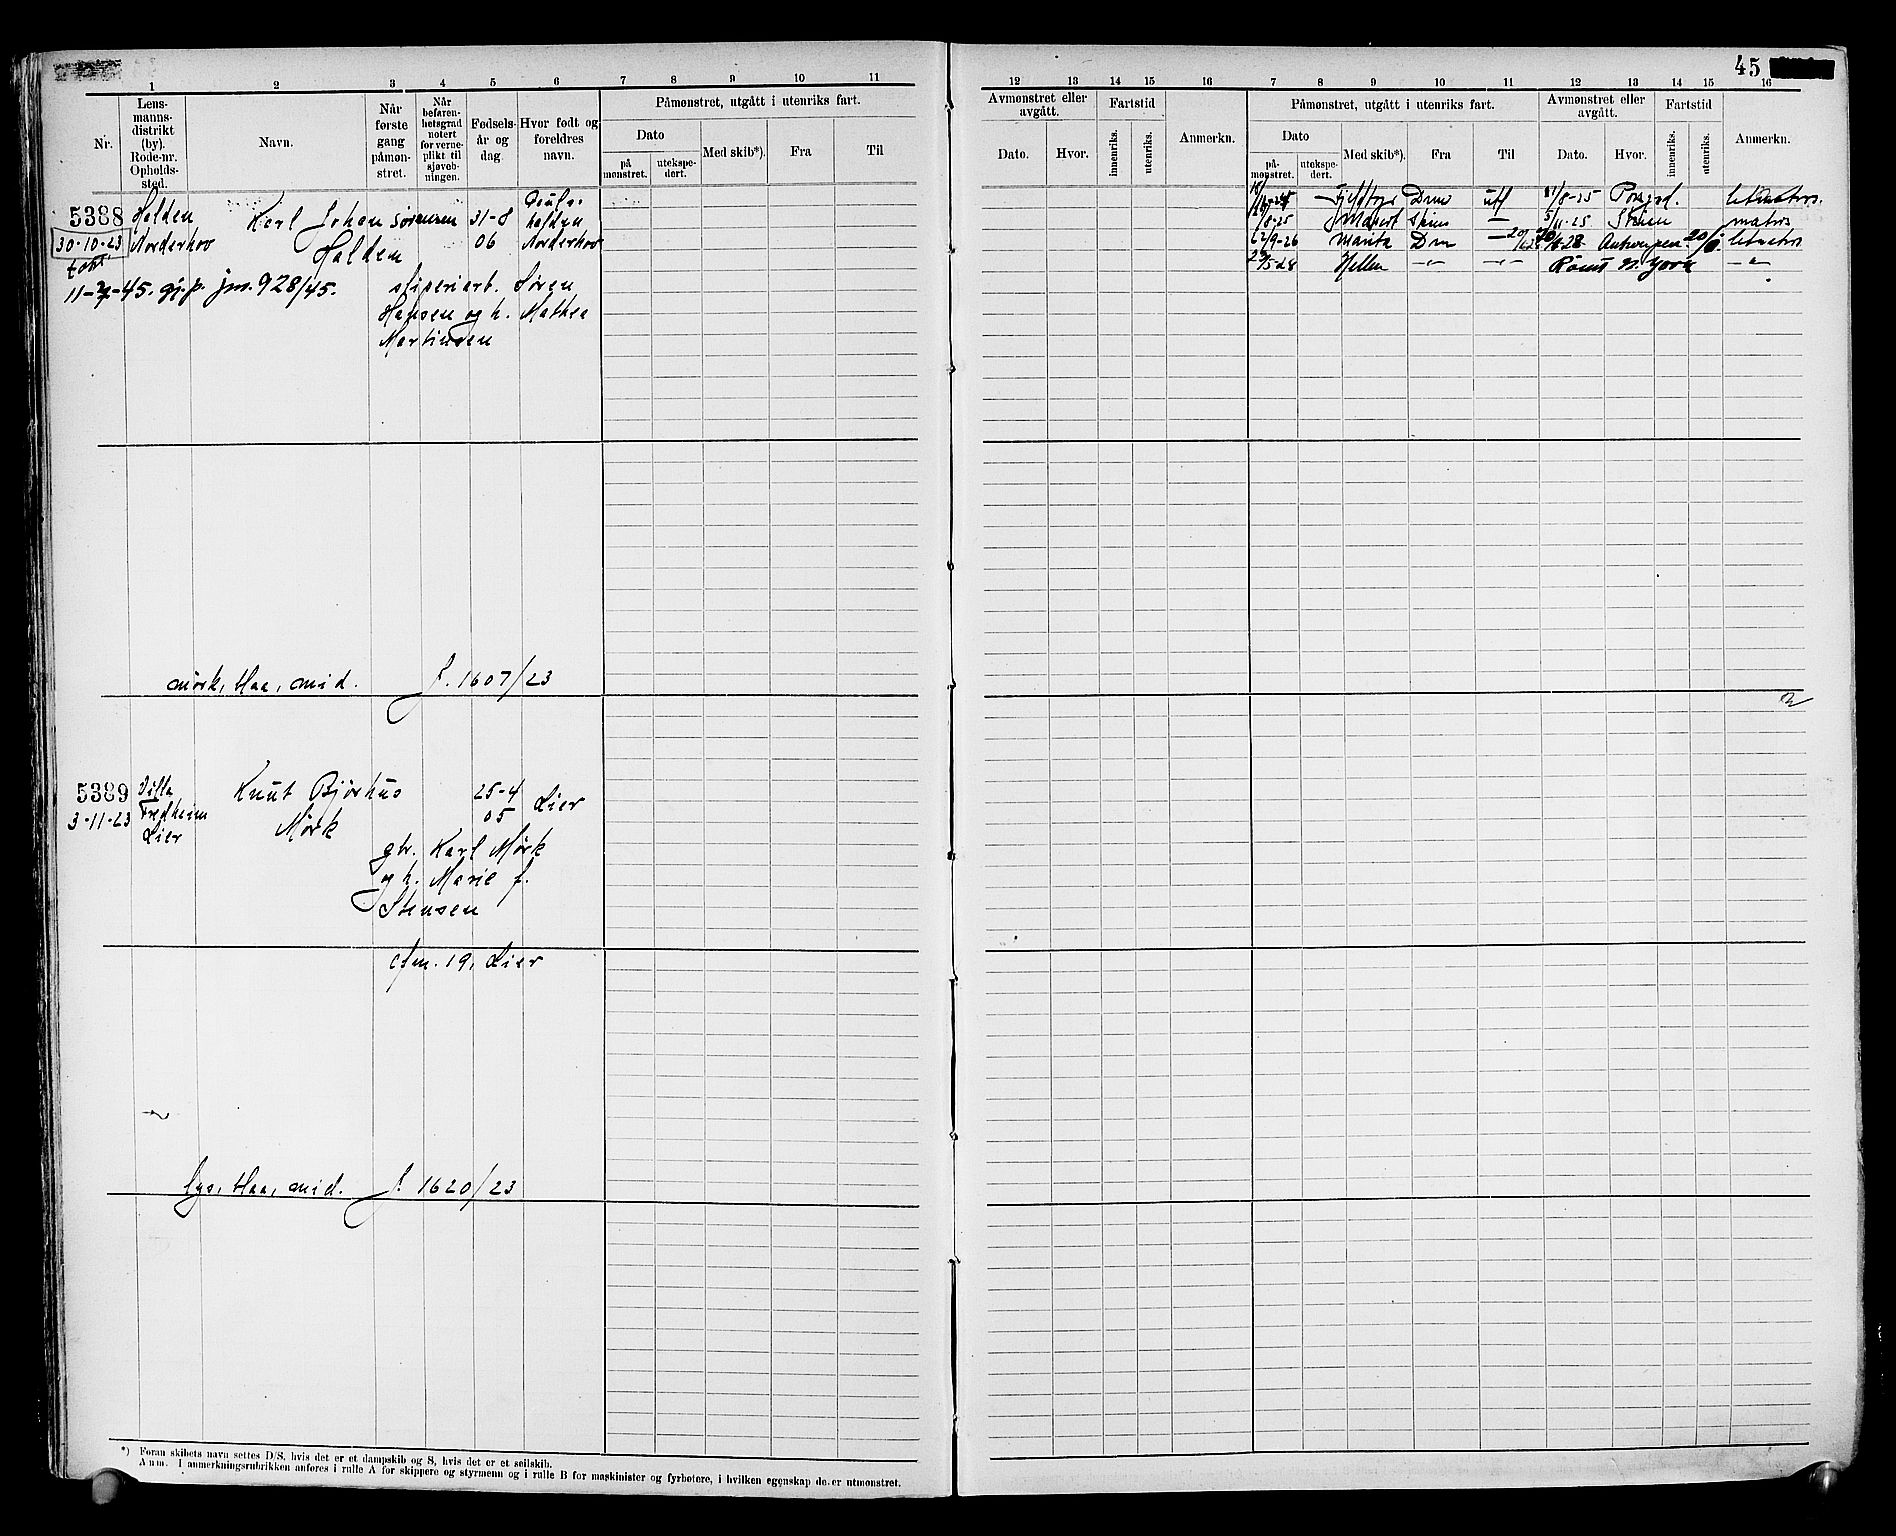 45
1 2 3 4 5 6 7 8 9 10 11
Nr.
Lens-
manns-
distrikt
(by).
Rode-nr.
Opholds-
sted.
Navn.
Når
første
gang
påmøn-
stret.
Når
befaren-
hetsgrad
notert
for verne-
plikt til
sjøveb-
ningen.
Fødsels-
år og
dag.
Hvor født og
foreldres
navn.
Påmønstret, utgått i utenriks fart.
Dato
på
mønstret.
utekspe-
dert.
Med skib*).
Fra
Til
5388
30-10-23
11-7-45. gj.p. jnr. 928/45.
Halden
Norderhov
Karl Johan Sørensen
Halden
31-8
06
Norderhov
sliperiarb. Søren
Hansen og h. Mathea
Martinsen
mørk, blaa, mid. J. 1607/23
5389
3-11-23
Villa
Fredheim
Lier
Knut Bjørhus
Mørk
25-4
05
Lier
gbr. Karl Mørk
og h. Marie f.
Stensen
cfm. 19, Lier
lys, blaa, mid. J. 1620/23
*) Foran skibets navn settes D/S, hvis det er et dampskib og S, hvis det er et seilskib.
Anm. I anmerkningsrubrikken anføres i rulle A for skippere og styrmenn og i rulle B for maskinister og fyrbøtere, i hvilken egenskap de er utmønstret.
12 13 14 15 16 7 8 9 10 11 12 13 14 15 16
Avmønstret eller
avgått.
Dato.
Hvor.
Fartstid
innenriks.
utenriks.
Anmerkn.
Påmønstret, utgått i utenriks fart.
Dato
på-
mønstret.
utekspe-
dert.
Med skib*).
Fra
Til
Avmønstret eller
avgått.
Dato.
Hvor.
Fartstid
innenriks.
utenriks.
Anmerkn.
Drm utf 11/8-25 Porsgr. letmatros.
/8-25 Skien — 5/11-25 Skien matros
/9-26 Marita Drm — Antwerpen letmatros
/5-28 Hellen —"— —"— Rømt N. York —"—